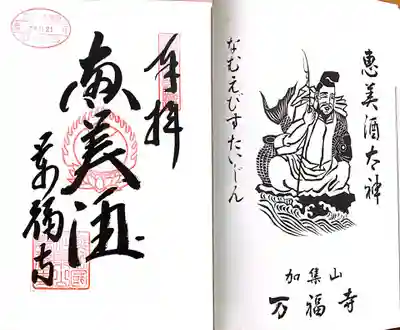 奉拝
恵美酒
万福寺
恵美酒大神
なむえびすたいじん
加集山
万福寺